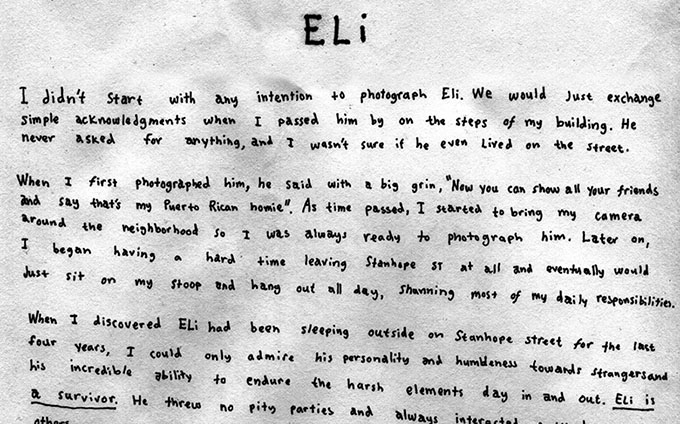 ELi
I didn't start with any intention to photograph Eli. We would Just exchange
simple acknowledgments when I passed him by on the steps of my building. He
never asked for anything, and I wasn't sure if he even Lived on the street.
When I first photographed him, he said with a big grin, "Now you can show all your friends
and say that's my Puerto Rican homie". As time passed, I started to bring my camera
around the neighborhood so I was always ready to photograph him. Later on,
I began having a hard time leaving Stanhope ST at all and eventually would
Just sit on my stoop and hang out all day, shunning most of my daily responsibilities.
When I discovered ELi had been sleeping outside on Stanhope street for the last
four years, I could only admire his personality and humbleness towards strangers and
his incredible ability to endure the harsh elements day in and out. ELi is
a survivor. He threw no pity parties and always interacted
others